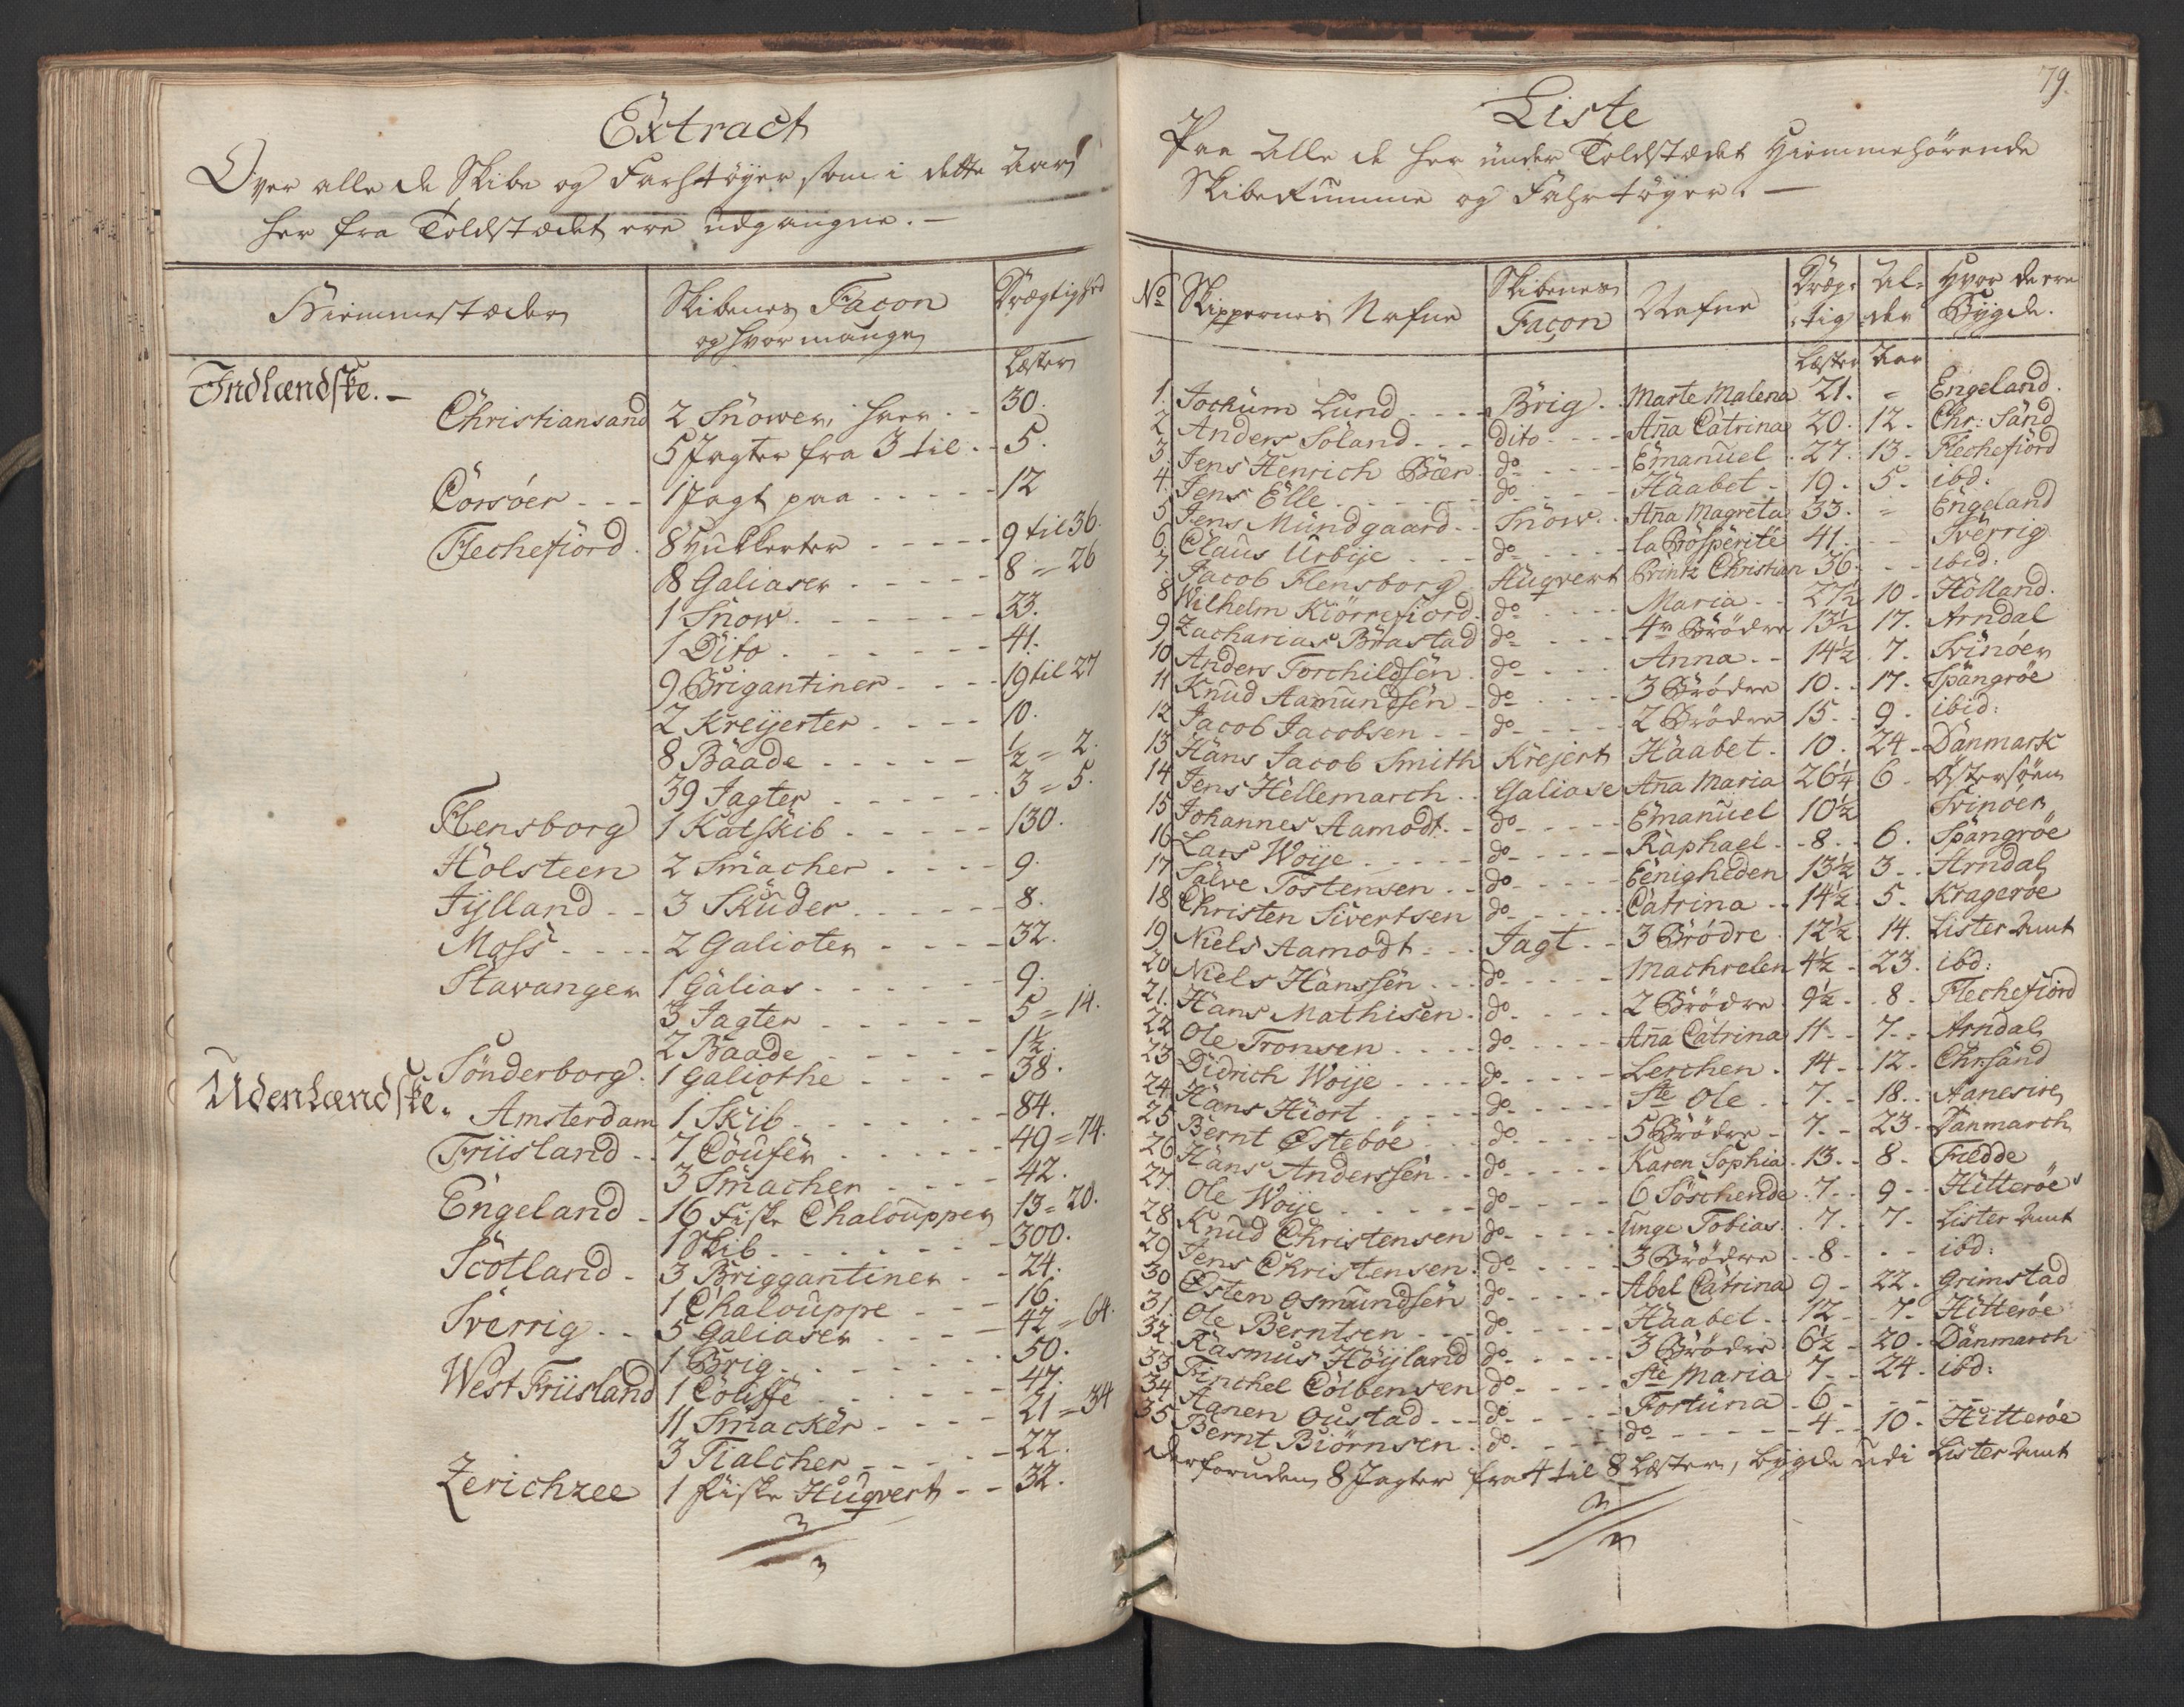 Extract
Over alle de Skibe og Farhtöyer som i dette Aar
her fra Toldstædet ere udgangne. —
Hiemmestæder | Skibenes Façon og hvor mange | Drægtighed
Læster
Indlændske. —
Christiansand | 2 Snower, hver | 30.
5 Jagter fra 3 til | 5.
Corsöer | 1 Jagt paa | 12
Flechefiörd | 8 Hukkerter | 9 til 36.
8 Galiaser | 8 = 26
1 Snow | 23.
1 Dito | 41.
9 Brigantiner | 19 til 27
2 Kreÿerter | 10.
8 Baade | ½ = 2.
39 Jagter | 3 = 5.
Flensborg | 1 Katskib | 130.
Holsteen | 2 Smacher | 9.
Jÿlland | 3 Skuder | 8.
Moss | 2 Galioter | 32.
Stavanger | 1 Galias | 9.
3 Jagter | 5 = 14.
2 Baade | 1½.
Sönderborg | 1 Galiothe | 38.
Udenlændske.
Amsterdam | 1 Skib | 84.
Friisland | 7 Coufer | 49 = 74.
3 Smacher | 42.
Engeland | 16 Fiske Chalouppen | 13 = 20.
1 Skib | 300.
Scotland | 3 Briggantiner | 24.
1 Chalouppe | 16.
Sverrig | 5 Galiaser | 42 = 64.
1 Brig | 50.
West Friisland | 1 Coliffe | 47.
11 Smacker | 21 = 34
3 Tialcher | 22.
Zerichzee | 1 fiske Huqvert | 32.
79.
Liste
Paa Alle de her under Toldstædet Hiemmehörende
Skibe Rumme og Fahrtöyer. —
No | Skippernes Nafne | Skibenes Façon | Nafne | Dræg: tig | Al: der | Hvor de ere Bÿgde.
Læster | Aar
1. | Jochum Lund | Brig | Marte Malena | 21. | = | Engeland.
2 | Anders Soland | Dito | Aña Catrina | 20. | 12. | Chr: Sand
3. | Jens Henrich Bær | do | Emanuel | 27. | 13. | Flechefiörd
4. | Jens Elle | do | Haabet | 19. | 5. | ibd:
5 | Jens Mundgaard | Snow | Aña Magreta | 33. | = | Engeland
6 | Claus Urbije | do | la Prosperité | 41. | - | Sverrig
7. | Jacob Flensborg | Huqvert | Printz Christian | 36. | - | ibid:
8 | Wilhelm Kiörrefiord | do | Maria | 27½ | 10. | Holland.
9. | Zacharias Baastad | do | 4re Brödre | 13½ | 17. | Arndal
10 | Anders Torchildsen | do | Anna | 14½ | 7. | Svinöer
11 | Knud Aamundsen | do | 3 Brödre | 10. | 17. | Spangröe
12 | Jacob Jacobsen | do | 2 Brödre | 15. | 9. | ibid:
13 | Hans Jacob Smith | Krejert | Haabet | 10. | 24. | Danmark
14 | Jens Hellemarch | Galiase | Aña Maria | 26¼ | 6. | Östersöen
15 | Johannes Aamodt | do | Emanuel | 10½ | Svinöer
16 | Lars Woije | do | Raphael | 8. | 6. | Spangröe
17 | Salve Tostensen | do | Eenigheden | 13½ | 3. | Arndal
18 | Christen Sivertsen | do | Catrina | 14½ | 5. | Kragerøe
19. | Niels Aamodt | Jagt | 3 Brödre | 12½ | 14. | Lister Amt
20 | Niels Hanssen | do | Machrelen | 4½ | 23. | ibd:
21. | Hans Mathisen | do | 2 Brödre | 9½ | 8. | Flechefiörd
22 | Ole Tronsen | do | Aña Catrina | 11. | 7. | Arndal
23 | Didrich Woije | do | Lerchen | 14. | 12. | Chrsand
24 | Hans Hiort | do | Ste Ole | 7. | 18. | Aanesire
25 | Bernt Östeböe | do | 5 Brödre | 7. | 23. | Danmarch
26 | Hans Anderssen | do | Karen Sophia | 13. | 8. | Fædde
27 | Ole Woije | do | 6 Söschende | 7. | 9. | Hitteröe
28 | Knud Christensen | do | Unge Tobias | 7. | 7. | Lister Amt
29 | Jens Christensen | do | 3 Brödre | 8. | - | ibd:
30 | Östen Osmundsen | do | Abel Catrina | 9. | 22. | Grimstad
31. | Ole Berntsen | do | Haabet | 12. | 7. | Hitteröe
32 | Rasmus Höijland | do | 3 Brödre | 6½ | 20. | Danmarch
33 | Tinchel Colbensen | do | Ste Maria | 7. | 24. | ibd:
34 | Aanen Oustad | do | Fortuna | 6. | -
35 | Bernt Biörnsen | do | do | 4. | 10. | Hitteröe
derforuden 8 Jagter fra 4 til 8 Læster, bÿgde udi Lister Amt